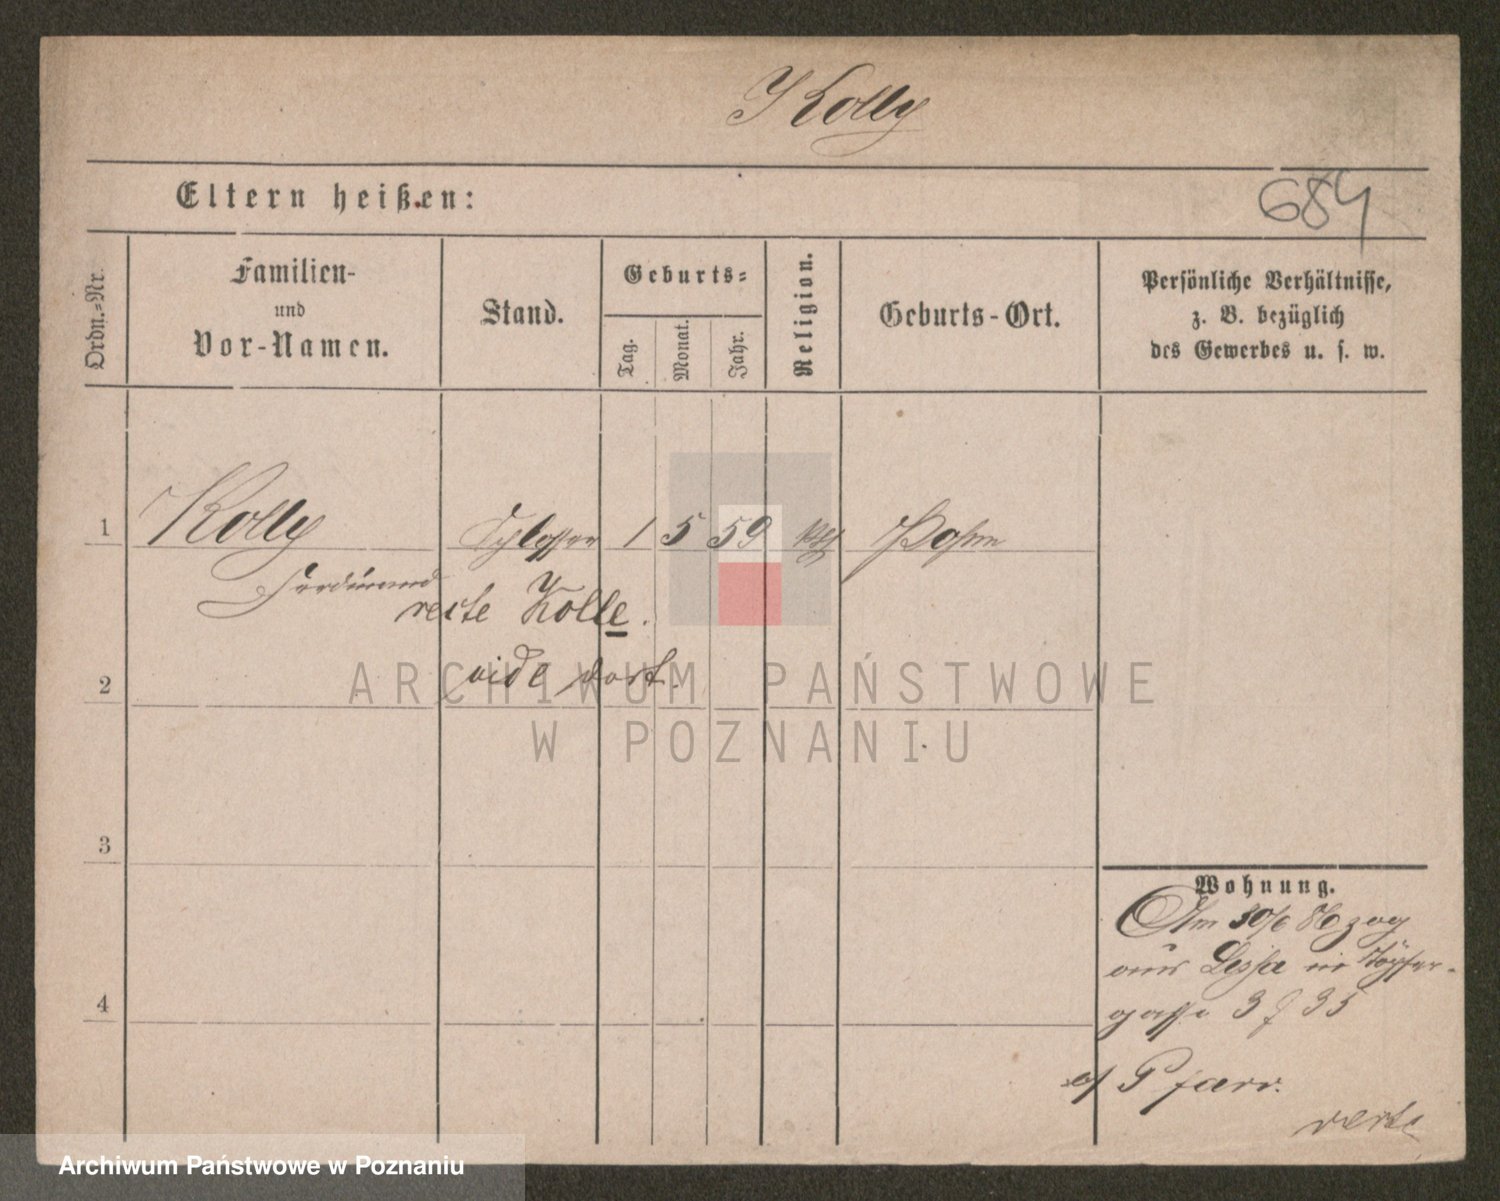 Kolly
Eltern heißen:
684
Ordn.-Nr.
Familien-
und
Vor-Namen.
Stand.
Geburts-
Tag.
Monat.
Jahr.
Religion.
Geburts-Ort.
Persönliche Verhältnisse,
z. B. bezüglich
des Gewerbes u. s. w.
1 Kolly Schlosser 1 5 59 Posen
Ferdinand
recte Kolle.
2 vide dort.
3
4
Wohnung.
Am 30/6 86 zog
aus Lissa in Töpfer-
gasse 3 f 35
Pfarr.
verte
ARCHIWUM PAŃSTWOWE
W POZNANIU
Archiwum Państwowe w Poznaniu